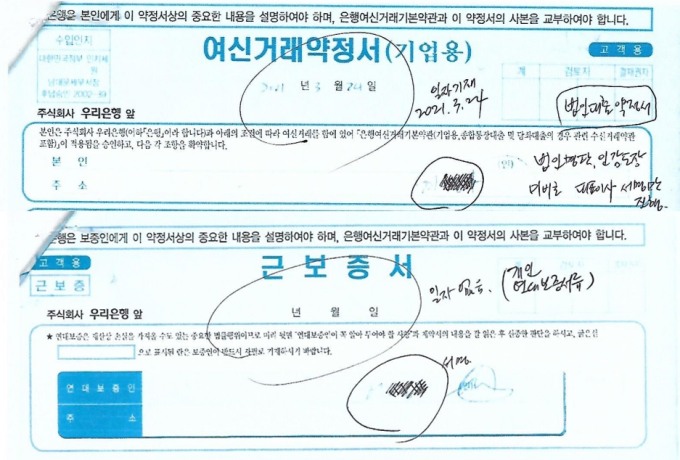 은행은 본인에게 이 약정서상의 중요한 내용을 설명하여야 하며, 은행여신거래기본약관과 이 약정서의 사본을 교부하여야 합니다.
수입인지
대한민국정부 인지세
원
남대문세무서장
후납승인 2002-
여신거래약정서(기업용)
고객용
계 검토자 결재권자
2021 년 3 월 24 일
일자기재
2021.3.24
법인대출약정서
주식회사 우리은행 앞
본인은 주식회사 우리은행(이하「은행」이라 합니다)과 아래의 조건에 따라 여신거래를 함에 있어 「은행여신거래기본약관(기업용, 종합통장대출 및 당좌대출의 경우 관련 수신거래약관
포함)」이 적용됨을 승인하고, 다음 각 조항을 확약합니다.
본 인
(인)
법인명판, 인감도장
주 소
대표이사 서명만
진행.
은행은 보증인에게 이 약정서상의 중요한 내용을 설명하여야 하며, 은행여신거래기본약관과 이 약정서의 사본을 교부하여야 합니다.
고객용
근보증
근보증서
년 월 일
일자 없음.
(개인
연대보증서류)
주식회사 우리은행 앞
★ 연대보증은 재산상 손실을 가져올 수도 있는 중요한 법률행위이므로 미리 뒷면 "연대보증인이 꼭 알아 두어야 할 사항"과 계약서의 내용을 잘 읽은 후 신중한 판단을 하시고, 굵은선
으로 표시된 란은 보증인이 반드시 자필로 기재하시기 바랍니다.
서명
연대보증인
주 소